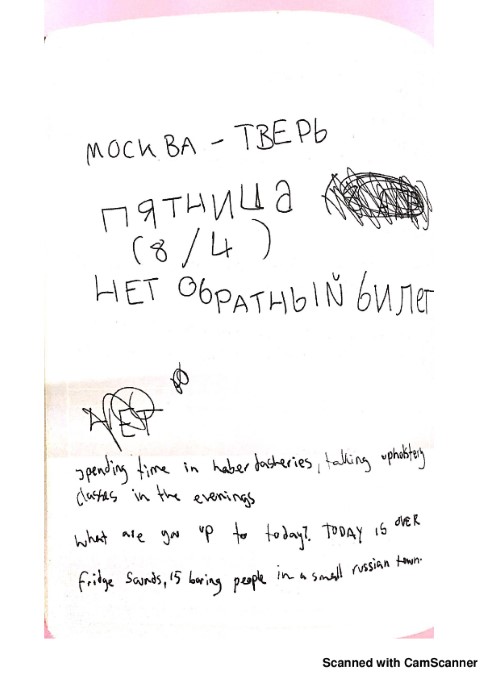 МОСКВА - ТВЕРЬ
ПЯТНИЦА
(8/4)
НЕТ ОБРАТНЫЙ БИЛЕТ
НЕТ
spending time in haberdasheries, talking upholstery
classes in the evenings
what are you up to today?. TODAY IS OVER
fridge sounds, 15 boring people in a small russian town.
Scanned with CamScanner